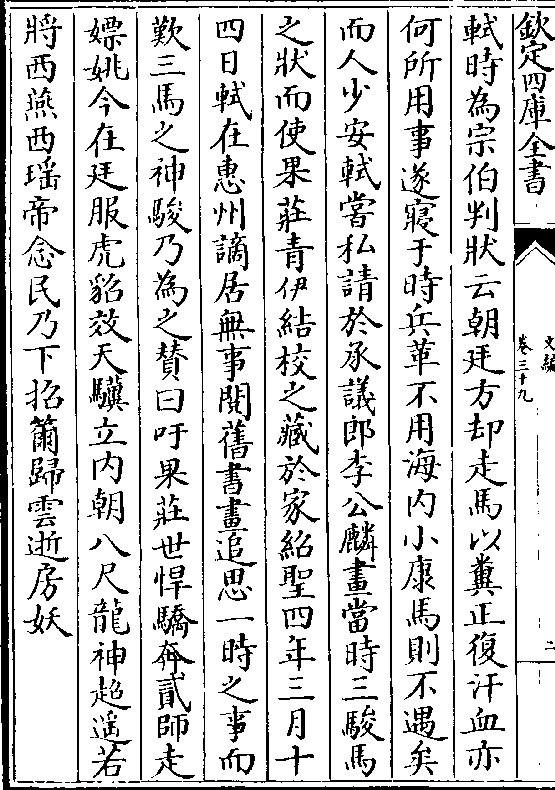 欽定四庫全書
文編
卷三十九
二
軾時為宗伯判狀云朝廷方却走馬以糞正復汗血亦
何所用事遂寢于時兵革不用海内小康馬則不遇矣
而人少安軾嘗私請於承議郎李公麟畫當時三駿馬
之狀而使果莊青伊結校之藏於家紹聖四年三月十
四日軾在惠州謫居無事閱舊書畫追思一時之事而
歎三馬之神駿乃為之賛曰吁果莊世悍驕奔貳師走
嫖姚今在廷服虎貂效天驥立内朝八尺龍神超遥若
將西燕西瑶帝念民乃下招籋歸雲逝房妖